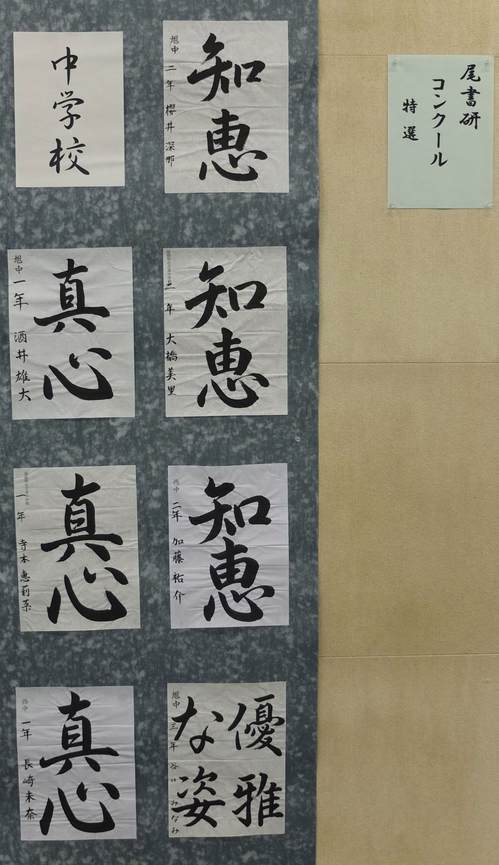 尾書研
コンクール
特選
知恵
旭中 二年 櫻井深那
知恵
二年 大橋美里
知恵
二年 加藤祐介
優雅
な姿
旭中 三年 谷口みなみ
中学校
真心
旭中 一年 酒井雄大
真心
一年 寺本恵莉菜
真心
一年 長崎未奈